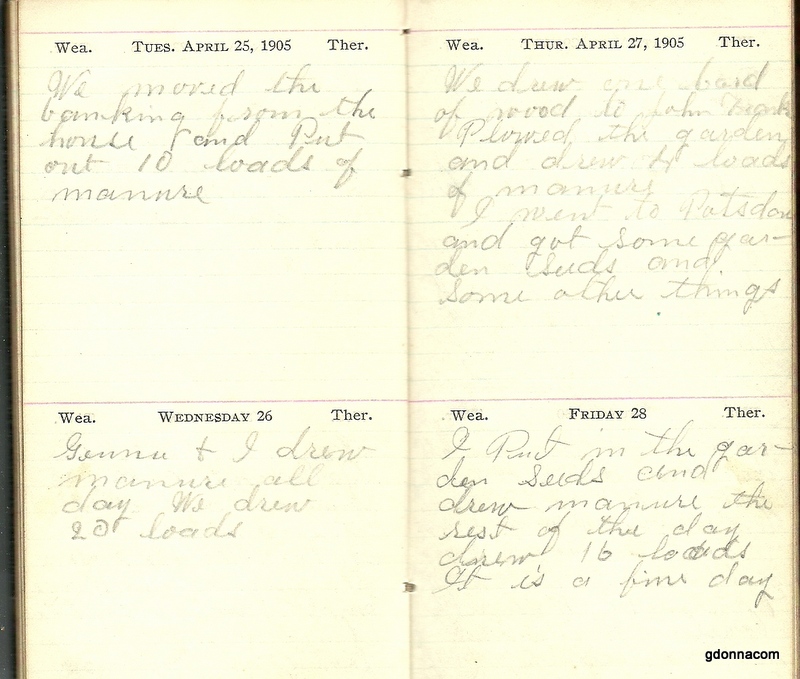 Wea. TUES. APRIL 25, 1905 Ther.
We moved the
banking from the
house & and Put
out 10 loads of
manure
Wea. WEDNESDAY 26 Ther.
& I drew
manure all
day We drew
20 loads
Wea. THUR. APRIL 27, 1905 Ther.
We drew one
of wood to John
Plowed the garden
and drew loads
of manure
I went to Potsdam
and got some gar-
den seeds and
some other things
Wea. FRIDAY 28 Ther.
I Put in the gar-
den seeds and
drew manure the
rest of the day
drew 16 loads
It is a fine day
gdonnacom